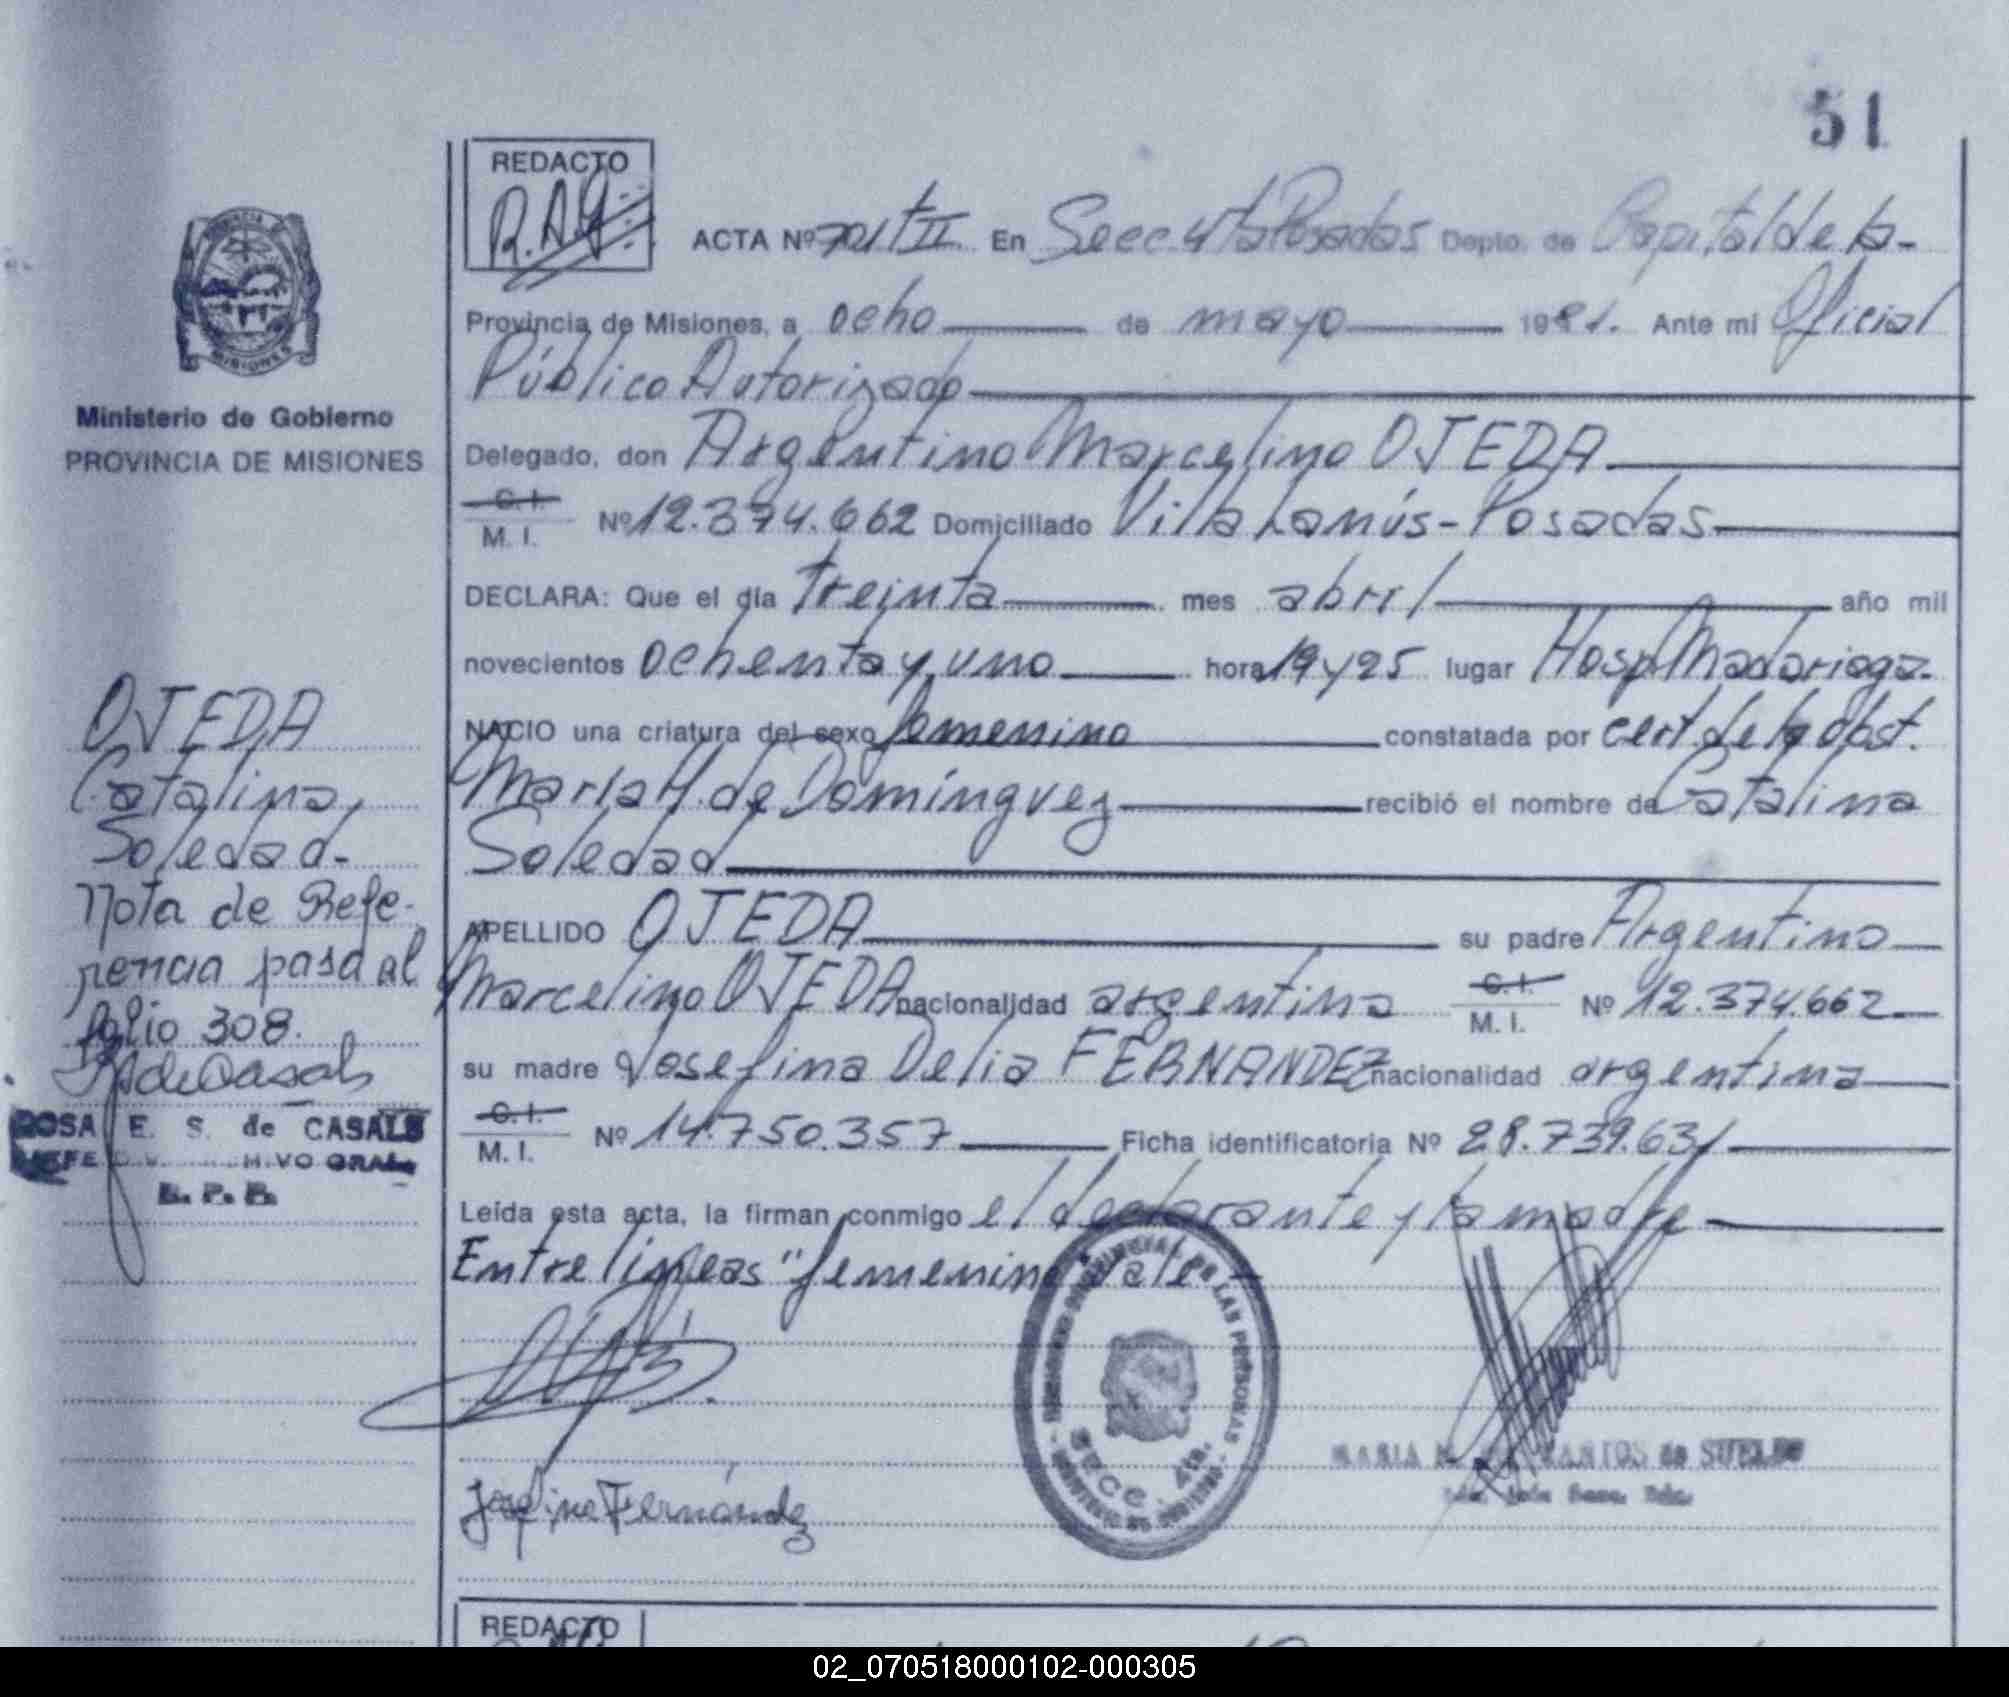 51
REDACTO
R.A.G
ACTA Nº 701 tII En Secc 4ta Posadas Depto. de Capital de la-
Provincia de Misiones, a ocho de mayo 1981. Ante mi Oficial
Público Autorizado
Delegado, don Argentino Marcelino OJEDA
C. I.
M. I. Nº 12.374.662 Domiciliado Villa Lanús - Posadas
DECLARA: Que el día treinta mes abril año mil
novecientos ochenta y uno hora 19 y 25 lugar Hosp Madariaga.
NACIO una criatura del sexo femenino constatada por cert. de la obst.
María H. de Domínguez recibió el nombre de Catalina
Soledad
APELLIDO OJEDA su padre Argentino
Marcelino OJEDA nacionalidad argentina C. I. M. I. Nº 12.374.662
su madre Josefina Delia FERNANDEZ nacionalidad argentina
C. I.
M. I. Nº 14.750.357 Ficha identificatoria Nº 28.739.631
Leída esta acta, la firman conmigo el declarante y la madre
Entre líneas "femenino" Vale-
Josefina Fernández
MARIA
de
SECC. 4ta.
PROVINCIA DE MISIONES
Ministerio de Gobierno
PROVINCIA DE MISIONES
OJEDA
Catalina
Soledad-
Nota de Refe-
rencia pasa al
folio 308.
ROSA E. S. de CASALS
JEFE GRAL.
R. P. P.
REDACTO
02_070518000102-000305